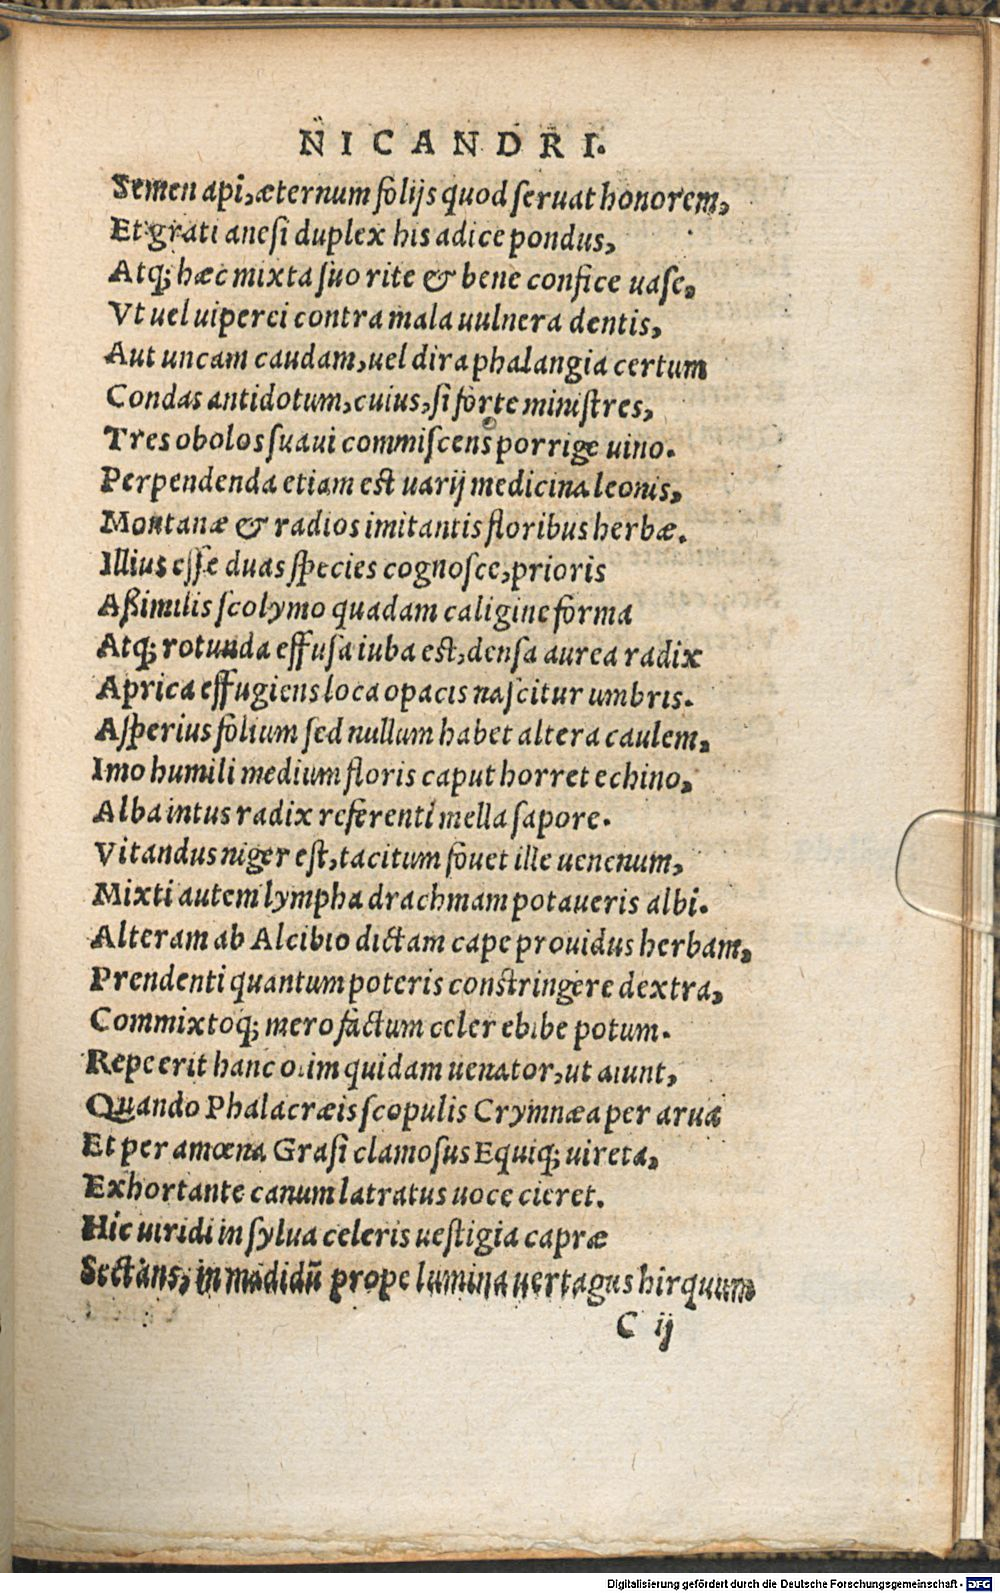 NICANDRI.
Semen api, æternum folijs quod seruat honorem,
Et grati anesi duplex his adice pondus,
Atq; hæc mixta suo rite & bene confice uase,
Vt uel uiperei contra mala uulnera dentis,
Aut uncam caudam, uel dira phalangia certum
Condas antidotum, cuius, si forte ministres,
Tres obolos suaui commiscens porrige uino.
Perpendenda etiam est uarij medicina leonis,
Montanæ & radios imitantis floribus herbæ.
Illius esse duas species cognosce, prioris
Aßimilis scolymo quadam caligine forma
Atq; rotunda effusa iuba est, densa aurea radix
Aprica effugiens loca opacis nascitur umbris.
Asperius folium sed nullum habet altera caulem,
Imo humili medium floris caput horret echino,
Alba intus radix referenti mella sapore.
Vitandus niger est, tacitum fouet ille uenenum,
Mixti autem lympha drachmam potaueris albi.
Alteram ab Alcibio dictam cape prouidus herbam,
Prendenti quantum poteris constringere dextra,
Commixtoq; mero factum celer ebibe potum.
Repeerit hanc olim quidam uenator, ut aiunt,
Quando Phalacræis scopulis Crymnæa per arua
Et per amœna Grasi clamosus Equiq; uireta,
Exhortante canum latratus uoce cieret.
Hic uiridi in sylua celeris uestigia capræ
Sectans, in madidũ prope lumina uertagus hirquum
C ij
Digitalisierung gefördert durch die Deutsche Forschungsgemeinschaft - DFG